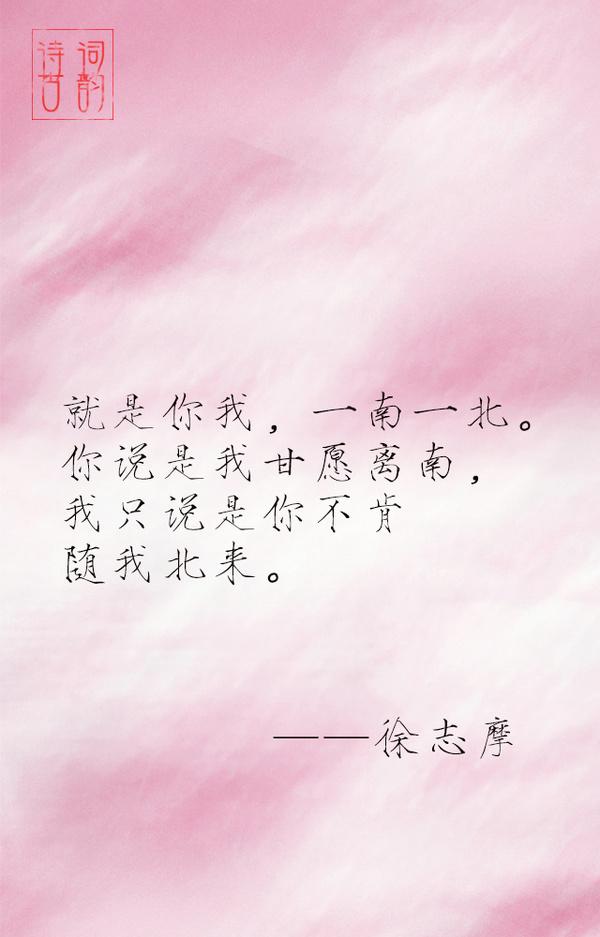 诗词
古韵
就是你我，一南一北。
你说是我甘愿离南，
我只说是你不肯
随我北来。
——徐志摩